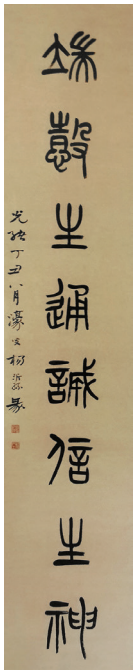 端愨生通誠信生神
光緒丁丑八月濠叟楊沂孫篆